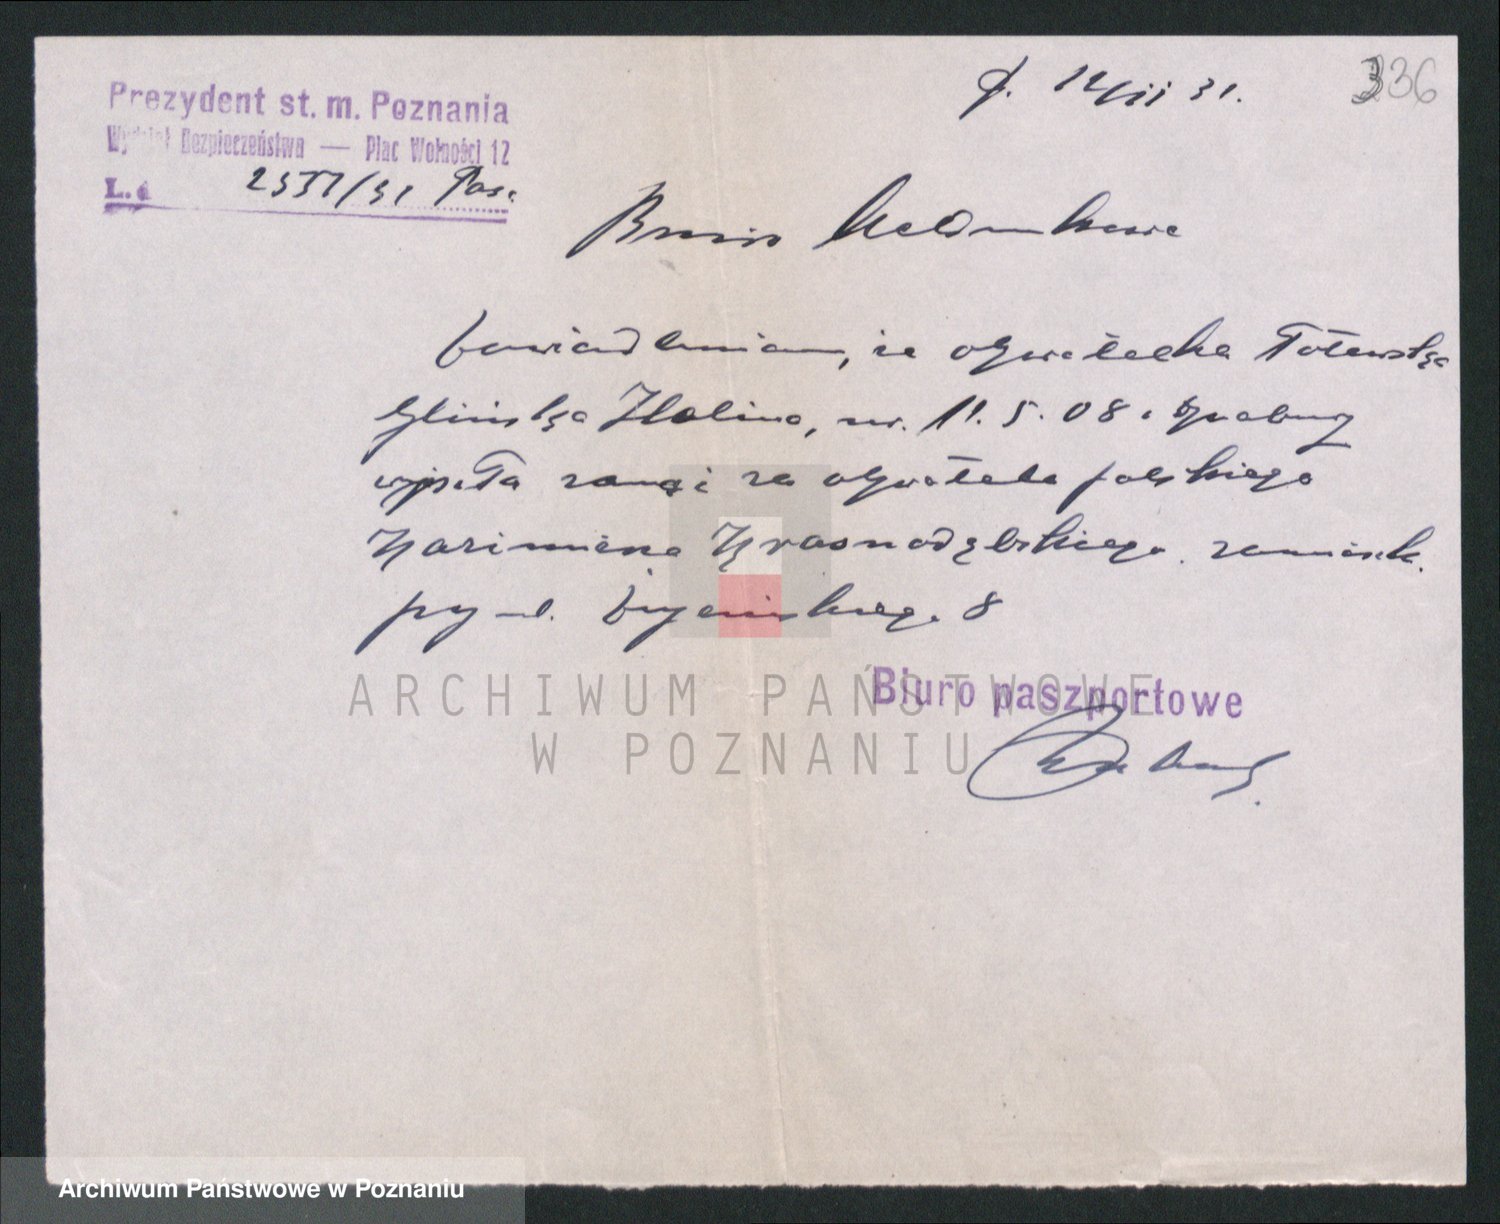 P. 12/III 31.
336
Prezydent st. m. Poznania
Wydział Bezpieczeństwa — Plac Wolności 12
L. d 2537/31 Pas.
Biuro Meldunkowe
Zawiadamiam, że obywatelka łotewska
Glińska Halina, ur. 11. 5. 08
wyszła za mąż za obywatela polskiego
Kazimierza Krasnodębskiego zamieszk.
przy ul. 8
Biuro paszportowe
ARCHIWUM PAŃSTWOWE
W POZNANIU
Archiwum Państwowe w Poznaniu